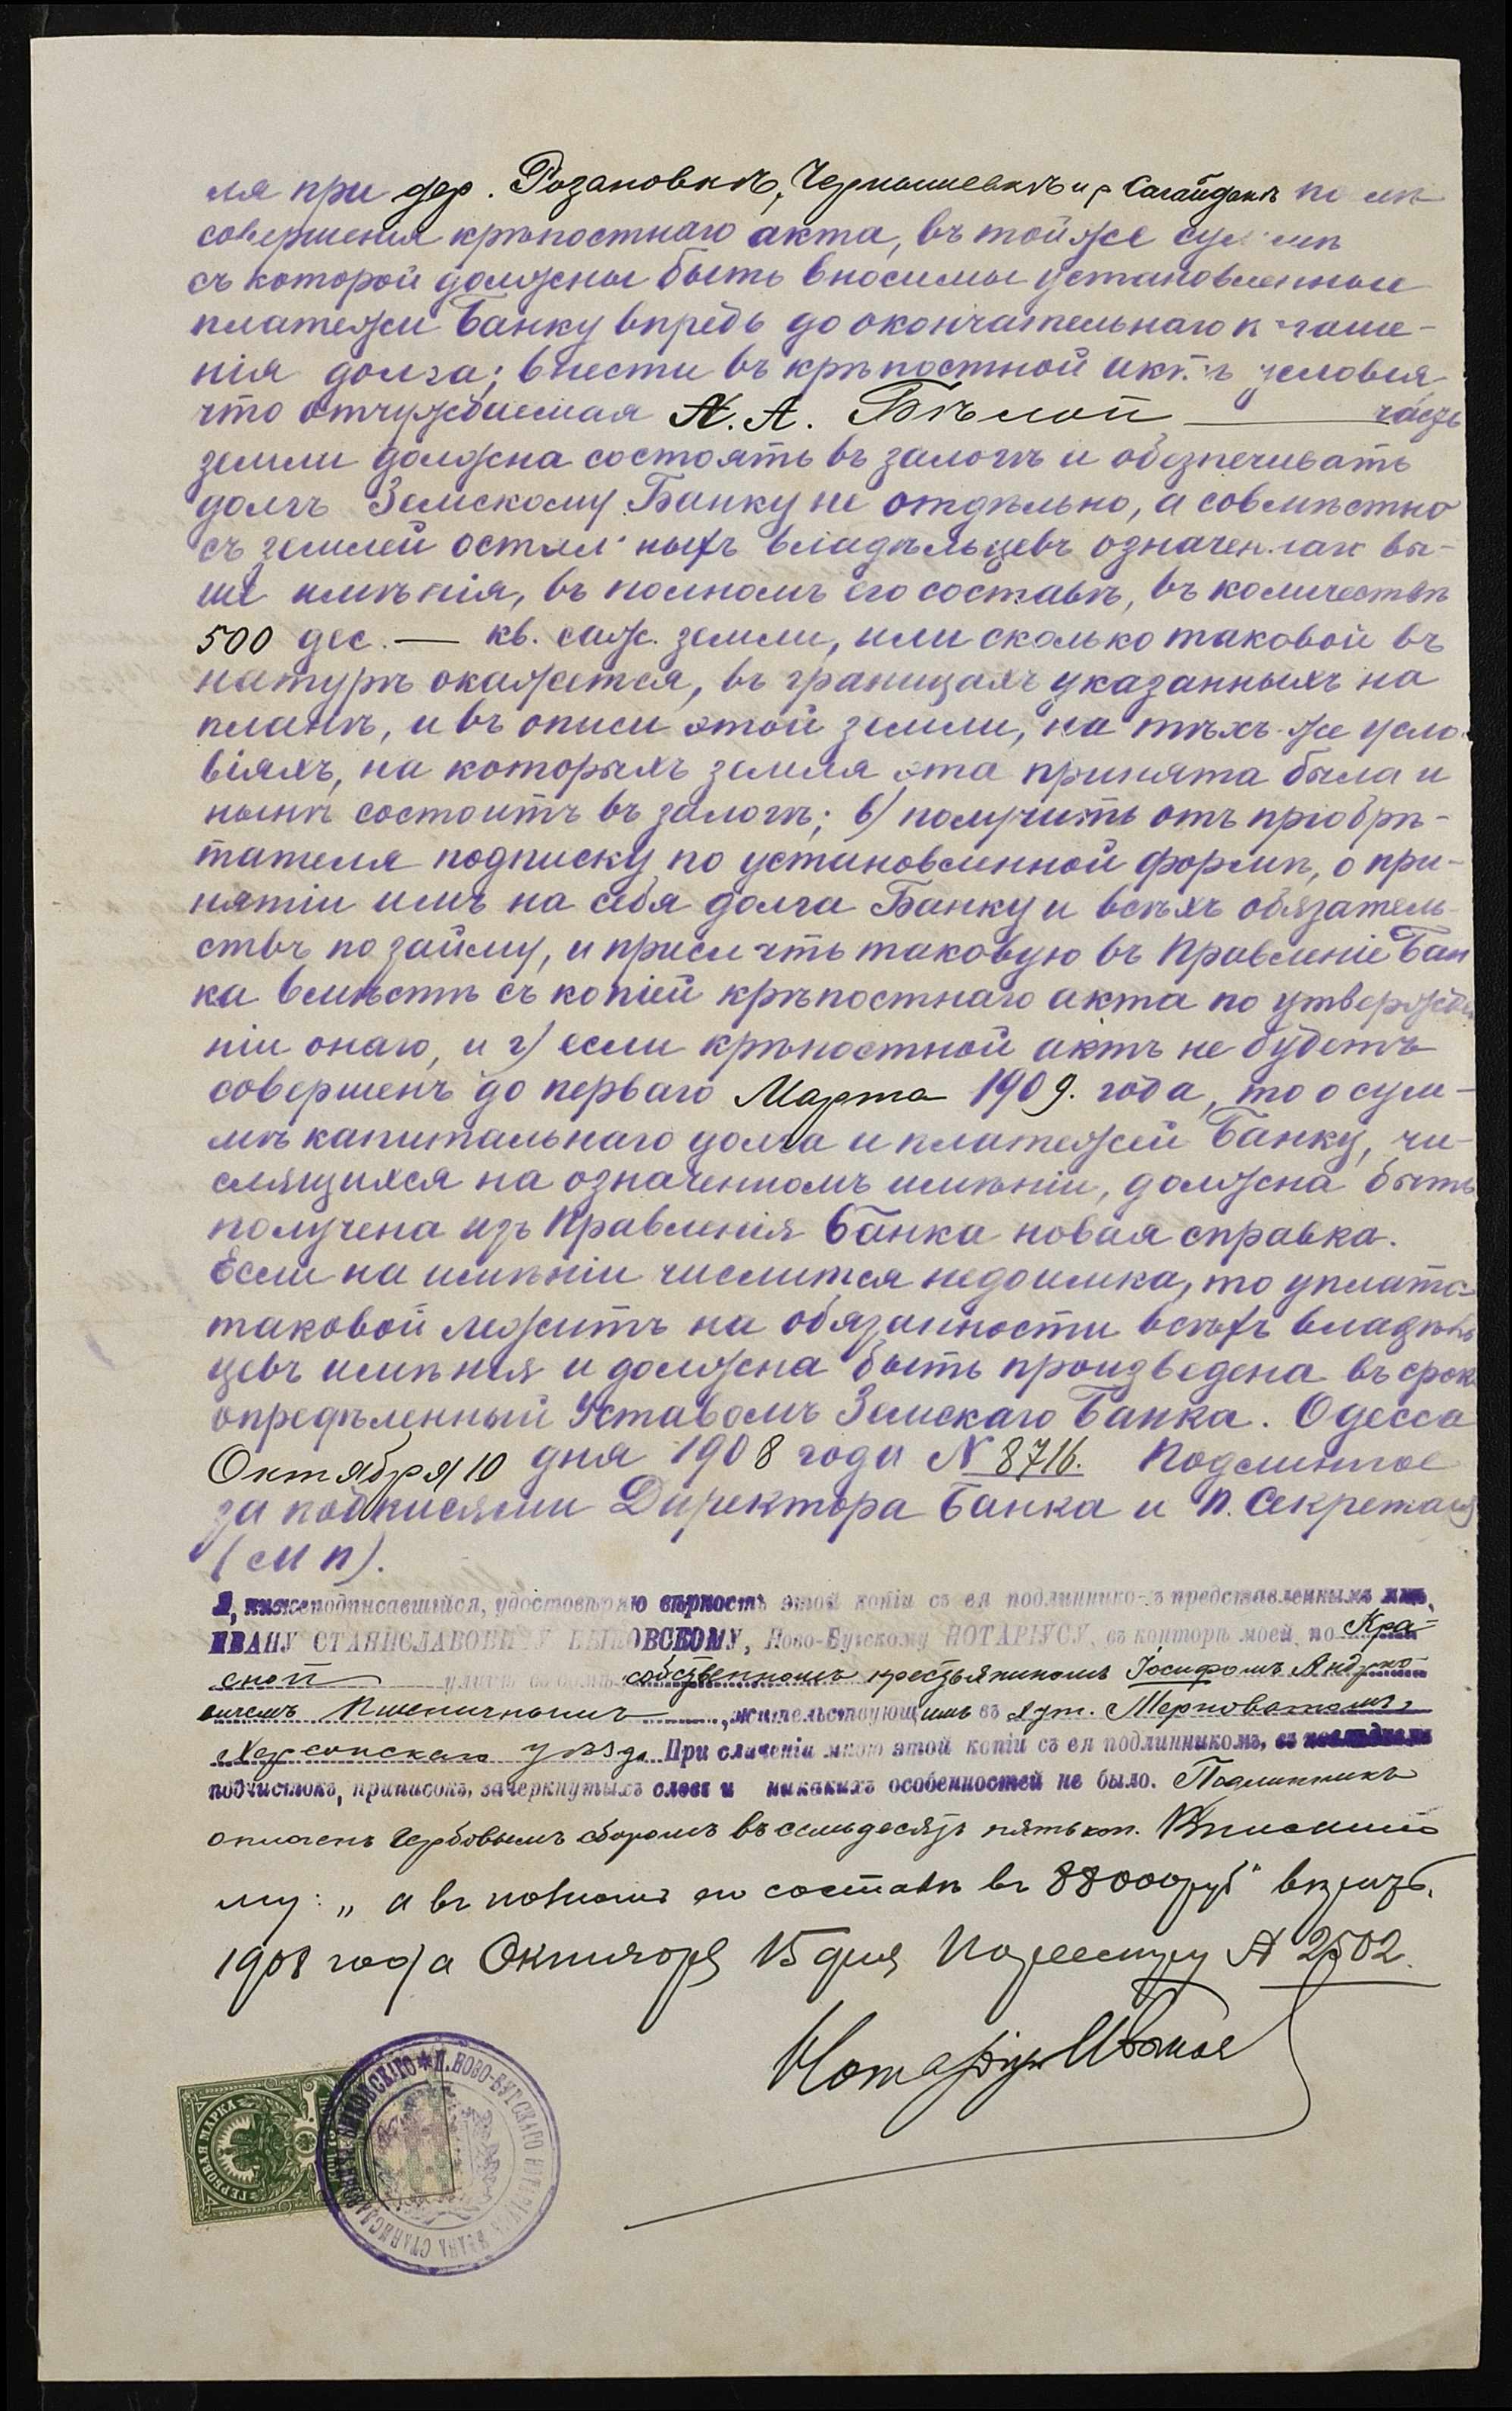 ля при дер. Розановкѣ, Чернышевкѣ и р. Сагайдакъ по
совершенія крѣпостнаго акта, въ той же суммѣ
съ которой должны быть вносимы установленные
платежи Банку впредь до окончательнаго погаше-
нія долга; внести въ крѣпостной актъ условія
что отчуждаемая Н. А. Бѣлой часть
земли должна состоять въ залогѣ и обезпечивать
долгъ Земскому Банку не отдѣльно, а совмѣстно
съ землей остальныхъ владѣльцевъ означеннаго вы-
ше имѣнія, въ полномъ его составѣ, въ количествѣ
500 дес. — кв. саж. земли, или сколько таковой въ
натурѣ окажется, въ границахъ указанныхъ на
планѣ, и въ описи этой земли, на тѣхъ-же усло-
віяхъ, на которыхъ земля эта принята была и
нынѣ состоитъ въ залогѣ; в) получить отъ пріобрѣ-
тателя подписку по установленной формѣ, о при-
нятіи имъ на себя долга Банку и всѣхъ обязатель-
ствъ по займу, и прислать таковую въ Правленіе Бан
ка вмѣстѣ съ копіей крѣпостнаго акта по утвержде
ніи онаго, и г) если крѣпостной актъ не будетъ
совершенъ до перваго Марта 1909. года, то о сум-
мѣ капитальнаго долга и платежей Банку, чи-
слящихся на означенномъ имѣніи, должна быть
получена изъ Правленія Банка новая справка.
Если на имѣніи числится недоимка, то уплата
таковой лежитъ на обязанности всѣхъ владѣль
цевъ имѣнія и должна быть произведена въ срок
опредѣленный Уставомъ Земскаго Банка. Одесса
Октября 10 дня 1908 года № 8716. Подлинное
за подписями Директора Банка и п. Секретаря
(М п).
Я, нижеподписавшійся, удостовѣряю вѣрность этой копіи съ ея подлинникомъ представленнымъ мнѣ,
ИВАНУ СТАНИСЛАВОВИЧУ БЫКОВСКОМУ, Ново-Бугскому НОТАРІУСУ, въ конторѣ моей, по Кра-
сной улицѣ въ домѣ собственномъ крестьяниномъ Іосифомъ Андрее-
вичемъ Пшеничнымъ, жительствующимъ въ хут. Мертоватомъ,
Херсонскаго уѣзда. При сличеніи мною этой копіи съ ея подлинникомъ, въ послѣднемъ
подчистокъ, приписокъ, зачеркнутыхъ словъ и никакихъ особенностей не было. Подлинникъ
оплаченъ гербовымъ сборомъ въ семьдесятъ пять коп. Вписанно
му: „а въ полномъ его составѣ въ 88000 руб“ вѣрить.
1908 года Октября 15 дня По реестру № 2502.
Нотаріусъ
ГЕРБОВАЯ МАРКА
И. НОВО-БУГСКАГО НОТАРІУСА ИВАНА СТАНИСЛАВОВИЧА БЫКОВСКАГО